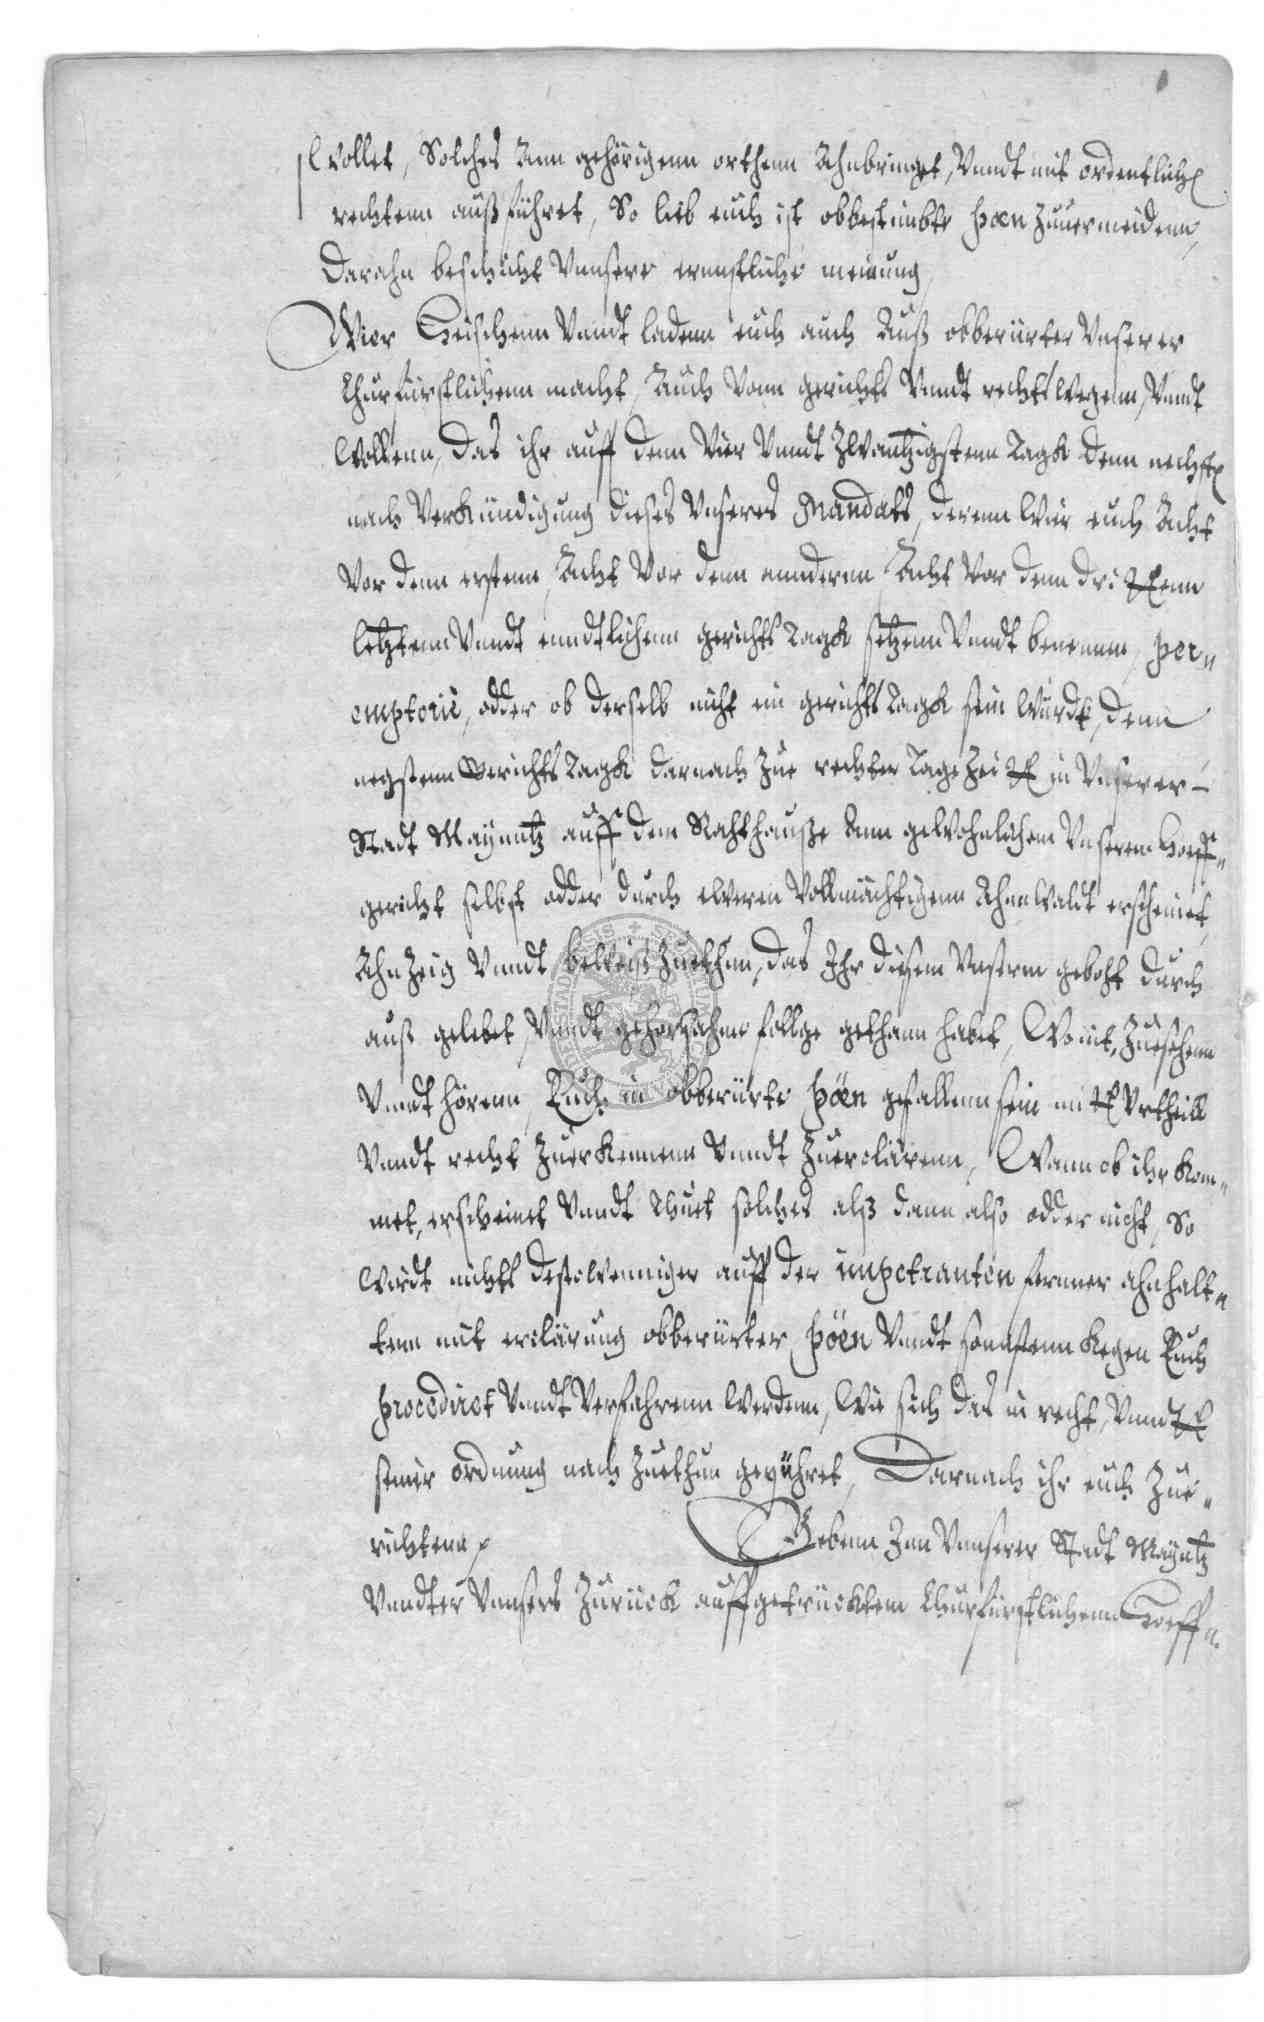 wollet, Solches Ann gehörigenn orthenn Ahnbringet, Vnndt mit ordentlich
rechtenn außführet, So lieb euch ist obbestimbte pœn Zuuermeidenn,
Darahn beschicht Vnnsere ernnstliche meinung,
Wier Heischenn Vnndt ladenn euch auch Auß obberürter Vnserer
Churfürstlichenn macht, Auch Vonn gerichts Vnndt rechts wegenn, Vnndt
wollenn, das ihr auff denn Vier Vnndt Zwantzigstenn Tagk denn nechste
nach Verkündigung dieses Vnseres Mandats, derenn wir euch Acht
Vor denn erstenn, Acht Vor denn annderen, Acht Vor denn drittenn
letztenn Vnndt enndtlichenn gerichts Tagk setzenn Vnndt benennen, per„
emptoriè, odder ob derselb nicht ein gerichts Tagk sein würdt, denn
negstenn Gerichts Tagk darnach Zue rechter Tage Zeitt in Vnserer
Stadt Mayntz auff dem Rahthauße Ann gewohnlichem Vnserem Hoeff„
gericht selbst odder durch eweren Vollmächtigenn Ahnwaldt erscheinet,
AhnZeig Vnndt beweiß Zuethun, das Ihr diesem Vnserm gebott durch
auß gelebet, Vnndt gehorsahme follge gethann habet, Wo nit, Zuesehenn
Vnndt hörenn, Euch in obberürte pöen gefallenn sein mitt Vrtheill
Vnndt recht Zuerkennenn Vnndt Zuerclärenn, Wann ob ihr kom„
met, erscheinet Vnndt thuet solches alß dann also odder nicht, So
wirdt nichts destoweniger auff der impetranten ferner ahnhalt„
tenn mit erclärung obberürter pöen Vnndt sonnstenn kegen Euch
procediret Vnndt Verfahrenn werdenn, Wie sich das in recht, Vnndt
seiner ordnung nach Zuethun gepühret, Darnach ihr euch Zue„
richtenn, Gebenn Inn Vnnserer Stadt Mayntz
Vnndter Vnnsers Zurück auffgetrücktem Churfürstlichenn Hoeff„